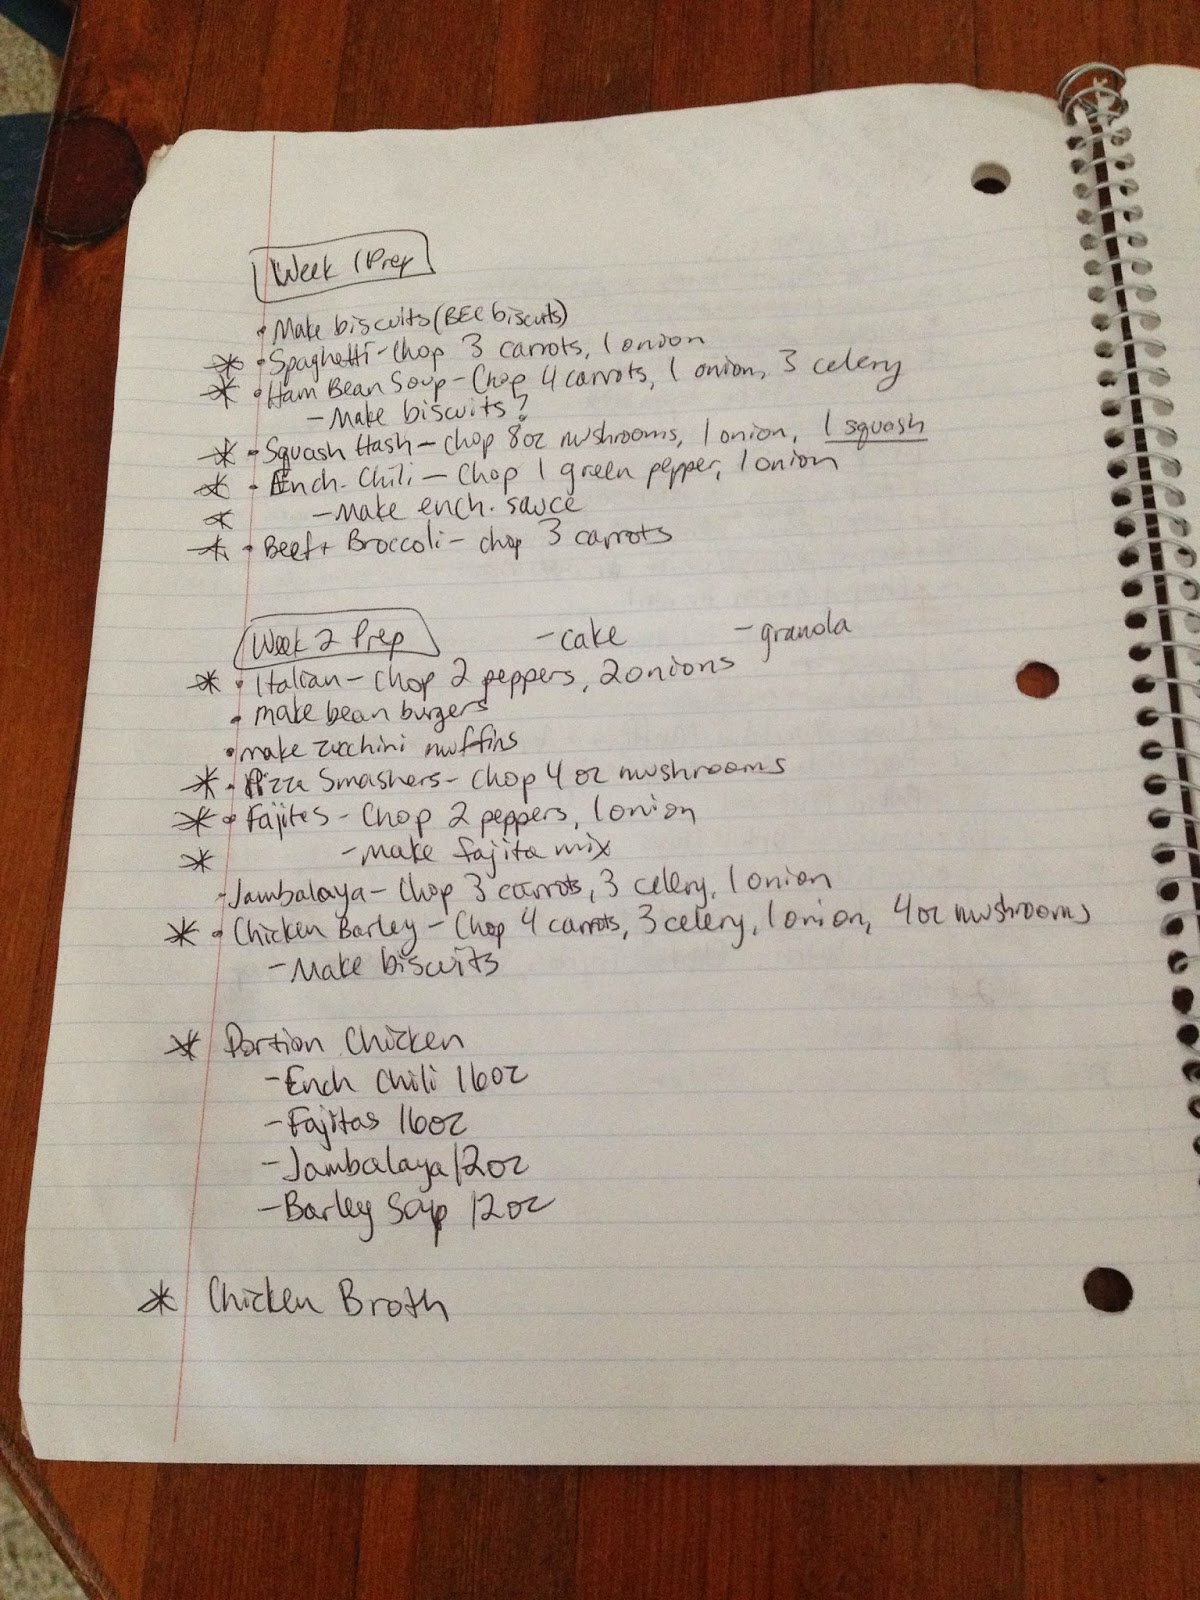 Week 1 Prep
• Make biscuits (BEC biscuits)
* • Spaghetti - Chop 3 carrots, 1 onion
* • Ham Bean Soup - Chop 4 carrots, 1 onion, 3 celery
- Make biscuits?
* • Squash Hash - chop 8oz mushrooms, 1 onion, 1 squash
* • Ench. Chili - Chop 1 green pepper, 1 onion
* - Make ench. sauce
* • Beef + Broccoli - chop 3 carrots
Week 2 Prep - cake - granola
* • Italian - Chop 2 peppers, 2 onions
• make bean burgers
• make zucchini muffins
* • Pizza Smashers - Chop 4 oz mushrooms
* • Fajitas - Chop 2 peppers, 1 onion
* - Make fajita mix
• Jambalaya - Chop 3 carrots, 3 celery, 1 onion
* • Chicken Barley - Chop 4 carrots, 3 celery, 1 onion, 4oz mushrooms
- Make biscuits
* Portion Chicken
- Ench Chili 16oz
- Fajitas 16oz
- Jambalaya 12oz
- Barley Soup 12oz
* Chicken Broth